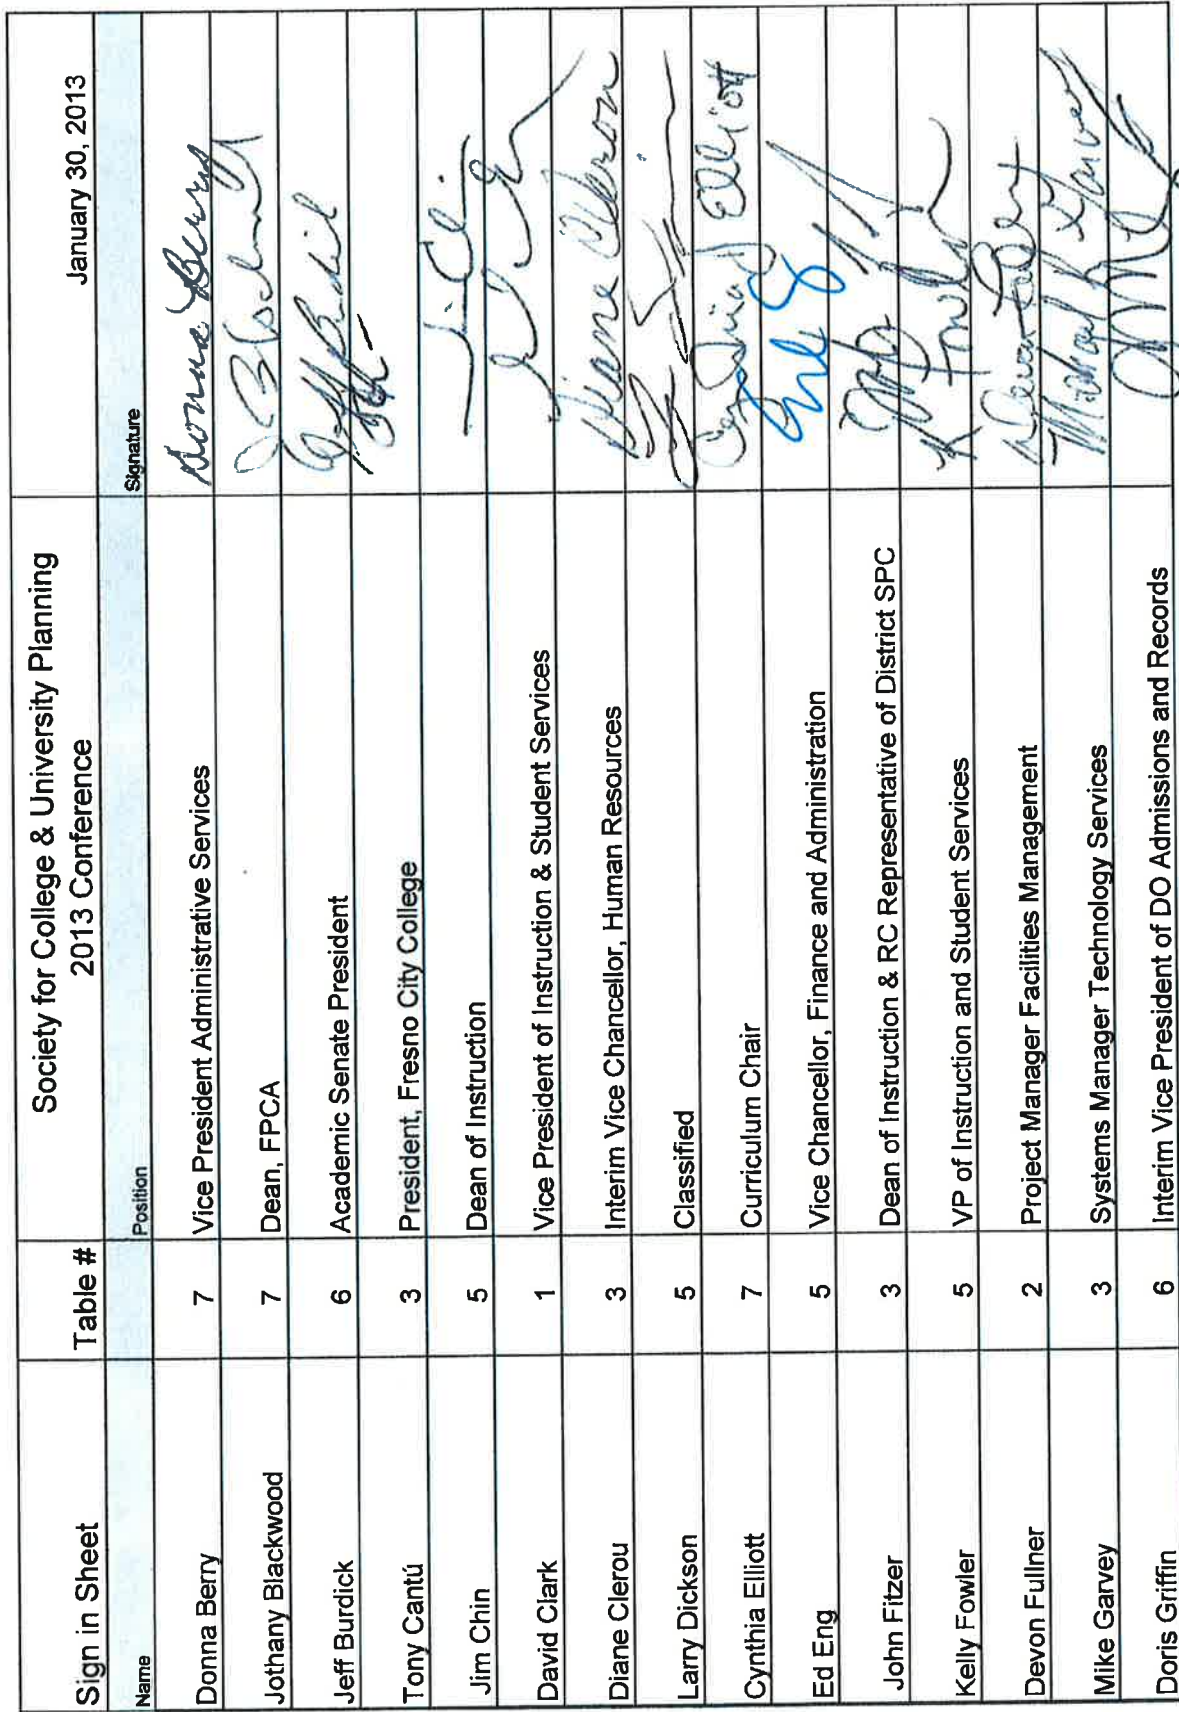 Society for College & University Planning
2013 Conference
Sign in Sheet Table # January 30, 2013
Name Position Signature
Donna Berry 7 Vice President Administrative Services Donna Berry
Jothany Blackwood 7 Dean, FPCA
Jeff Burdick 6 Academic Senate President Jeff Burdick
Tony Cantú 3 President, Fresno City College
Jim Chin 5 Dean of Instruction Jim Chin
David Clark 1 Vice President of Instruction & Student Services
Diane Clerou 3 Interim Vice Chancellor, Human Resources Diane Clerou
Larry Dickson 5 Classified
Cynthia Elliott 7 Curriculum Chair Cynthia Elliott
Ed Eng 5 Vice Chancellor, Finance and Administration
John Fitzer 3 Dean of Instruction & RC Representative of District SPC
Kelly Fowler 5 VP of Instruction and Student Services K Fowler
Devon Fullner 2 Project Manager Facilities Management Devon Fullner
Mike Garvey 3 Systems Manager Technology Services Michael Garvey
Doris Griffin 6 Interim Vice President of DO Admissions and Records